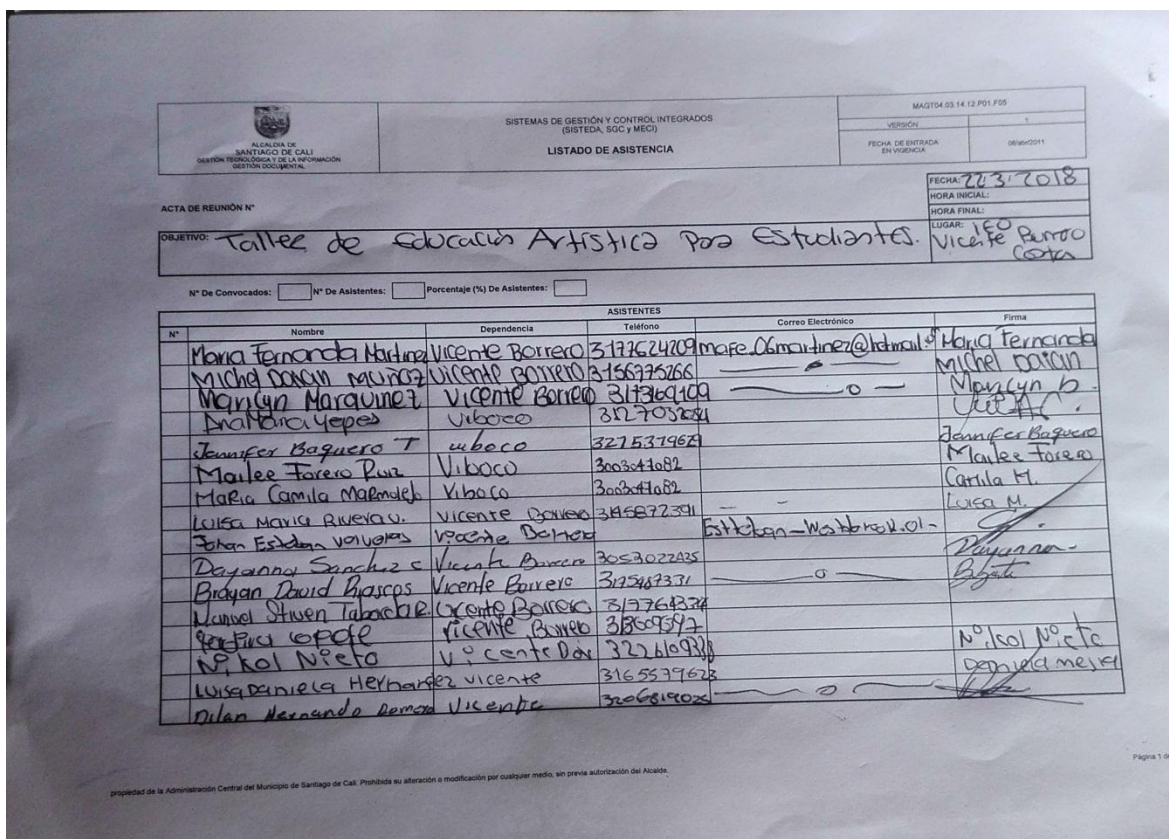 ALCALDÍA DE
SANTIAGO DE CALI
GESTIÓN TECNOLÓGICA Y DE LA INFORMACIÓN
GESTIÓN DOCUMENTAL
SISTEMAS DE GESTIÓN Y CONTROL INTEGRADOS
(SISTEDA, SGC y MECI)
LISTADO DE ASISTENCIA
MAGT04.03.14.12.P01.F05
VERSIÓN 1
FECHA DE ENTRADA EN VIGENCIA 08/abr/2011
ACTA DE REUNIÓN N°
FECHA: 22 3 2018
HORA INICIAL:
HORA FINAL:
LUGAR: IEO
Vicente Borrero
Costa
OBJETIVO: Taller de Educación Artística para Estudiantes.
N° De Convocados: N° De Asistentes: Porcentaje (%) De Asistentes:
ASISTENTES
N° Nombre Dependencia Teléfono Correo Electrónico Firma
Maria Fernanda Martinez Vicente Borrero 3177624209 mafe_06martinez@hotmail. Maria Fernanda
Michel Daian Muñoz Vicente Borrero 3156775266 Michel Daian
Marilyn Marquinez Vicente Borrero Marilyn
Ana Maria Yepes Viboco
Jennifer Baquero T uiboco Jennifer Baquero
Mailee Forero Ruiz Viboco 3003041082 Mailee Forero
Maria Camila Marmolejo Viboco 3003041082 Camila M.
Luisa Maria Rivera V. Vicente Borrero Luisa M.
Johan Esteban Vicente
Dayanna Sanchez C Vicente Borrero 3053022435 Dayanna
Brayan David Vicente Borrero
Manuel Stiven Taborda R. Vicente Borrero
Vicente Borrero
Nikol Nieto Vicente Nikol Nieto
Luisa Daniela Hernandez Vicente 3165579623 Daniela mejia
Dilan Hernando Vicente
propiedad de la Administración Central del Municipio de Santiago de Cali. Prohibida su alteración o modificación por cualquier medio, sin previa autorización del Alcalde.
Página 1 de